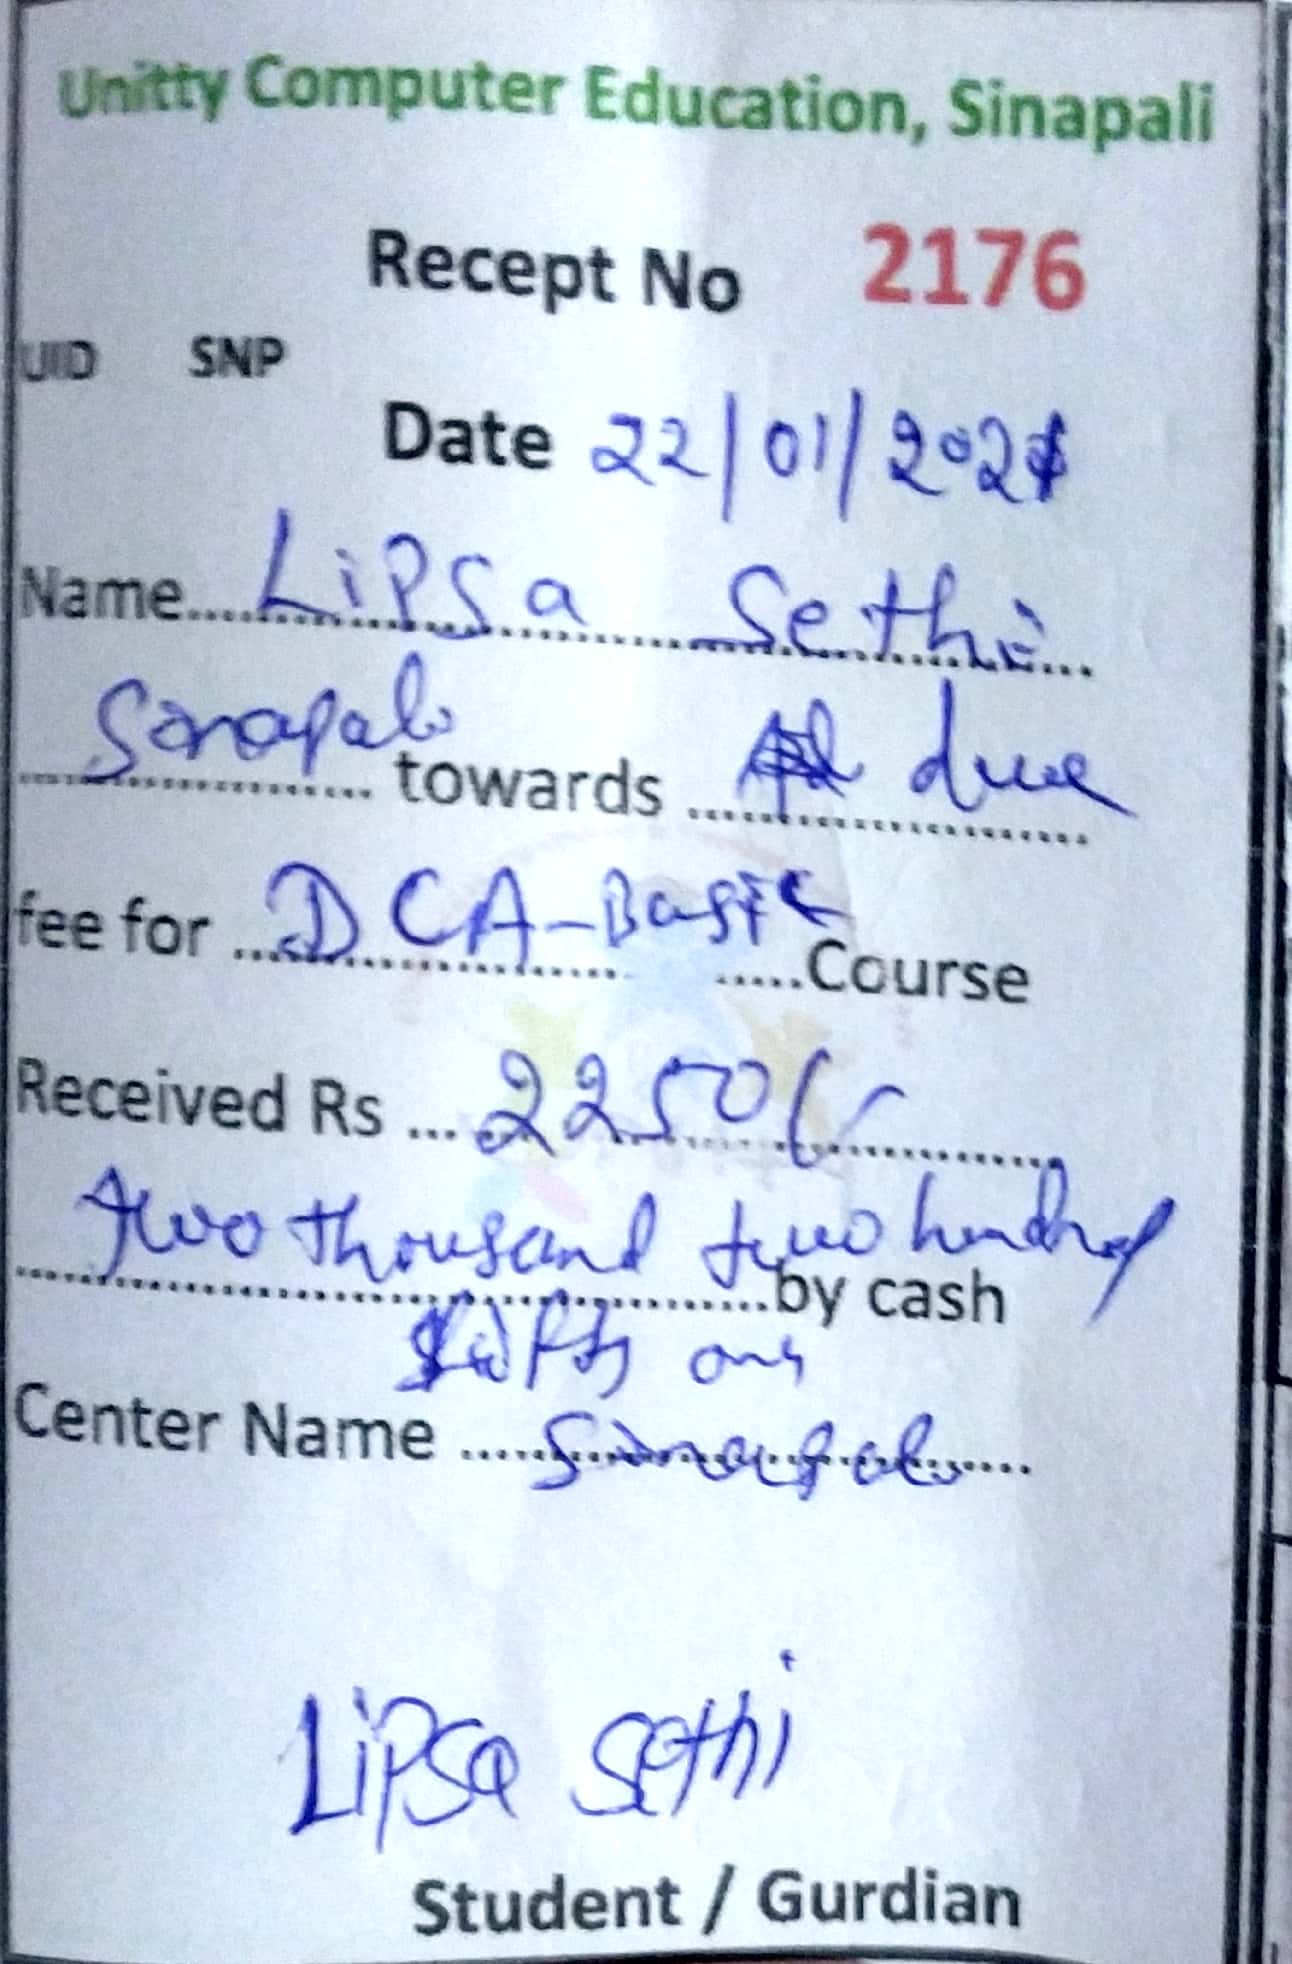 Unitty Computer Education, Sinapali
Recept No 2176
UID SNP
Date 22/01/202
Name.... Lipsa Sethi
Sinapali towards due
fee for DCA-Basic Course
Received Rs ... 2250/-
two thousand two hundred
by cash
fifty only
Center Name Sinapali
Lipsa Sethi
Student / Gurdian